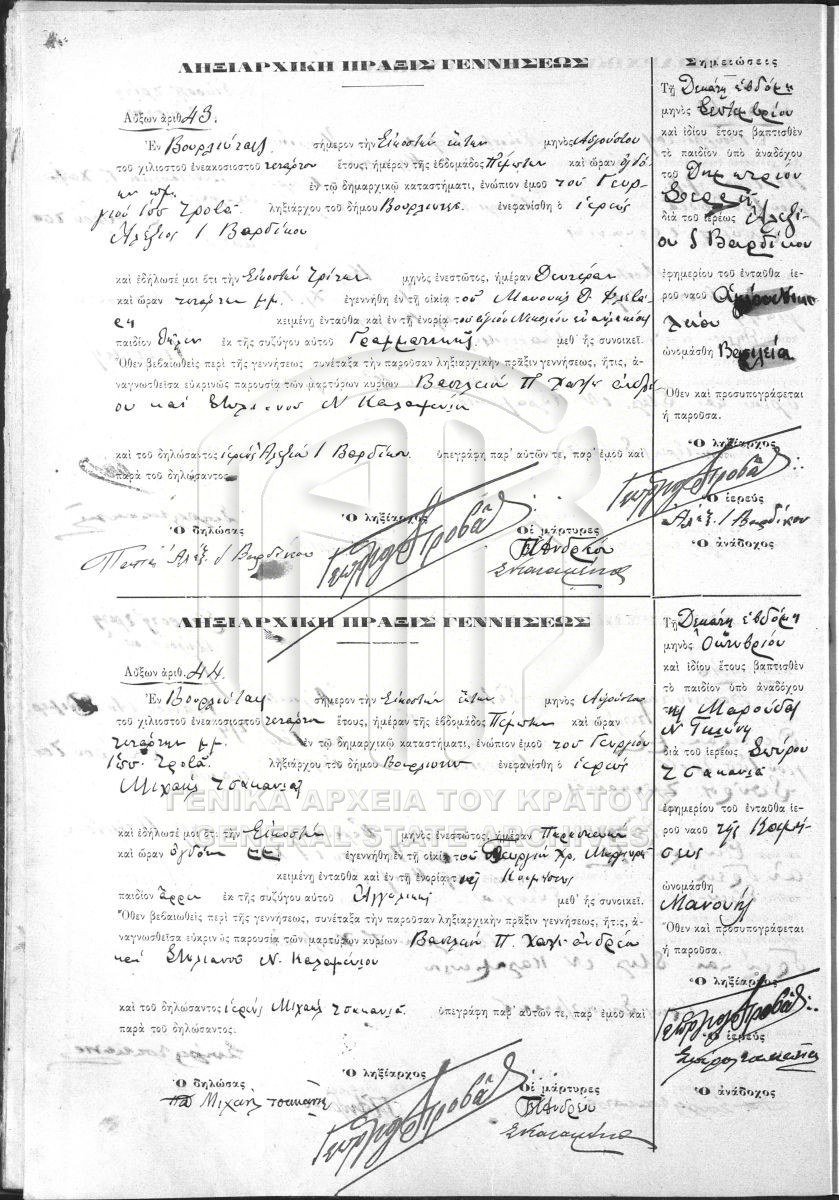 ΛΗΞΙΑΡΧΙΚΗ ΠΡΑΞΙΣ ΓΕΝΝΗΣΕΩΣ
Αὔξων ἀριθ. 43.
Ἐν Βουρλιώταις σήμερον τὴν Εἰκοστὴν ἕκτην μηνὸς Αὐγούστου
τοῦ χιλιοστοῦ ἐνεακοσιοστοῦ τετάρτου ἔτους, ἡμέραν τῆς ἑβδομάδος Πέμπτην καὶ ὥραν ὀγδό
ην πμ. ἐν τῷ δημαρχικῷ καταστήματι, ἐνώπιον ἐμοῦ τοῦ Γεωρ-
γίου Ἰωσ. Προβᾶ ληξιάρχου τοῦ δήμου ἐνεφανίσθη ὁ ἱερεὺς
Ἀλέξιος Ι Βαρδίκου
καὶ ἐδήλωσέ μοι ὅτι τὴν Εἰκοστὴν Τρίτην μηνὸς ἐνεστῶτος, ἡμέραν Δευτέραν
καὶ ὥραν τετάρτην μμ. ἐγεννήθη ἐν τῇ οἰκίᾳ τοῦ Μανουὴλ
κειμένῃ ἐνταῦθα καὶ ἐν τῇ ἐνορίᾳ τοῦ ἁγίου Νικολάου
παιδίον θῆλυ ἐκ τῆς συζύγου αὐτοῦ Γραμματικῆς μεθ᾽ ἧς συνοικεῖ.
Ὅθεν βεβαιωθεὶς περὶ τῆς γεννήσεως συνέταξα τὴν παροῦσαν ληξιαρχικὴν πρᾶξιν γεννήσεως, ἥτις, ἀ-
ναγνωσθεῖσα εὐκρινῶς παρουσίᾳ τῶν μαρτύρων κυρίων Βασιλείου Π. Χατζ ανδρέ
ου καὶ Στυλιανοῦ Ν Καλαμένιου
καὶ τοῦ δηλώσαντος ἱερέως Ἀλεξίου Ι Βαρδίκου. ὑπεγράφη παρ᾽ αὐτῶν τε, παρ᾽ ἐμοῦ καὶ
παρὰ τοῦ δηλώσαντος.
Ὁ δηλώσας Ὁ ληξίαρχος Οἱ μάρτυρες
Παπᾶ Ἀλέξ. Ι Βαρδίκου Γεώργιος Προβᾶς
Σημειώσεις
Τῇ Δεκάτῃ ἑβδόμῃ
μηνὸς Σεπτεμβρίου
καὶ ἰδίου ἔτους βαπτισθὲν
τὸ παιδίον ὑπὸ ἀναδόχου
τοῦ Δημητρίου
διὰ τοῦ ἱερέως Ἀλεξί
ου Ι Βαρδίκου
ἐφημερίου τοῦ ἐνταῦθα ἱε-
ροῦ ναοῦ
ὠνομάσθη Βασιλεία
Ὅθεν καὶ προσυπογράφεται
ἡ παροῦσα.
Ὁ ληξίαρχος
Γεώργιος Προβᾶς
Ὁ ἱερεὺς
Ἀλέξ. Ι Βαρδίκου
Ὁ ἀνάδοχος
ΛΗΞΙΑΡΧΙΚΗ ΠΡΑΞΙΣ ΓΕΝΝΗΣΕΩΣ
Αὔξων ἀριθ. 44.
Ἐν Βουρλιώταις σήμερον τὴν Εἰκοστὴν ἕκτην μηνὸς Αὐγούστου
τοῦ χιλιοστοῦ ἐνεακοσιοστοῦ τετάρτου ἔτους, ἡμέραν τῆς ἑβδομάδος Πέμπτην καὶ ὥραν
τετάρτην μμ. ἐν τῷ δημαρχικῷ καταστήματι, ἐνώπιον ἐμοῦ τοῦ Γεωργίου
Ἰωσ. Προβᾶ ληξιάρχου τοῦ δήμου ἐνεφανίσθη ὁ ἱερεὺς
Μιχαὴλ Τσακανιᾶς
καὶ ἐδήλωσέ μοι ὅτι τὴν Εἰκοστὴν μηνὸς ἐνεστῶτος, ἡμέραν Παρασκευὴν
καὶ ὥραν ὀγδόην ἐγεννήθη ἐν τῇ οἰκίᾳ τοῦ Γεωργίου Χρ.
κειμένῃ ἐνταῦθα καὶ ἐν τῇ ἐνορίᾳ τῆς Κοιμήσεως
παιδίον ἄρρεν ἐκ τῆς συζύγου αὐτοῦ Ἀγγελικῆς μεθ᾽ ἧς συνοικεῖ.
Ὅθεν βεβαιωθεὶς περὶ τῆς γεννήσεως, συνέταξα τὴν παροῦσαν ληξιαρχικὴν πρᾶξιν γεννήσεως, ἥτις, ἀ-
ναγνωσθεῖσα εὐκρινῶς παρουσίᾳ τῶν μαρτύρων κυρίων Βασιλείου Π. Χατζ ανδρέου
καὶ Στυλιανοῦ Ν. Καλαμένιου
καὶ τοῦ δηλώσαντος ἱερέως Μιχαὴλ Τσακανιᾶ ὑπεγράφη παρ᾽ αὐτῶν τε, παρ᾽ ἐμοῦ καὶ
παρὰ τοῦ δηλώσαντος.
Ὁ δηλώσας Ὁ ληξίαρχος Οἱ μάρτυρες
Μιχαὴλ Γεώργιος Προβᾶς
Τῇ Δεκάτῃ ἑβδόμῃ
μηνὸς Ὀκτωβρίου
καὶ ἰδίου ἔτους βαπτισθὲν
τὸ παιδίον ὑπὸ ἀναδόχου
τῆς Μαρούδας
διὰ τοῦ ἱερέως Σπύρου
Τσακανιᾶ
ἐφημερίου τοῦ ἐνταῦθα ἱε-
ροῦ ναοῦ τῆς Κοιμή-
σεως
ὠνομάσθη
Μανουήλ
Ὅθεν καὶ προσυπογράφεται
ἡ παροῦσα.
Ὁ ληξίαρχος
Γεώργιος Προβᾶς
Ὁ ἱερεὺς
Ὁ ἀνάδοχος
ΓΕΝΙΚΑ ΑΡΧΕΙΑ ΤΟΥ ΚΡΑΤΟΥΣ
GENERAL STATE ARCHIVES